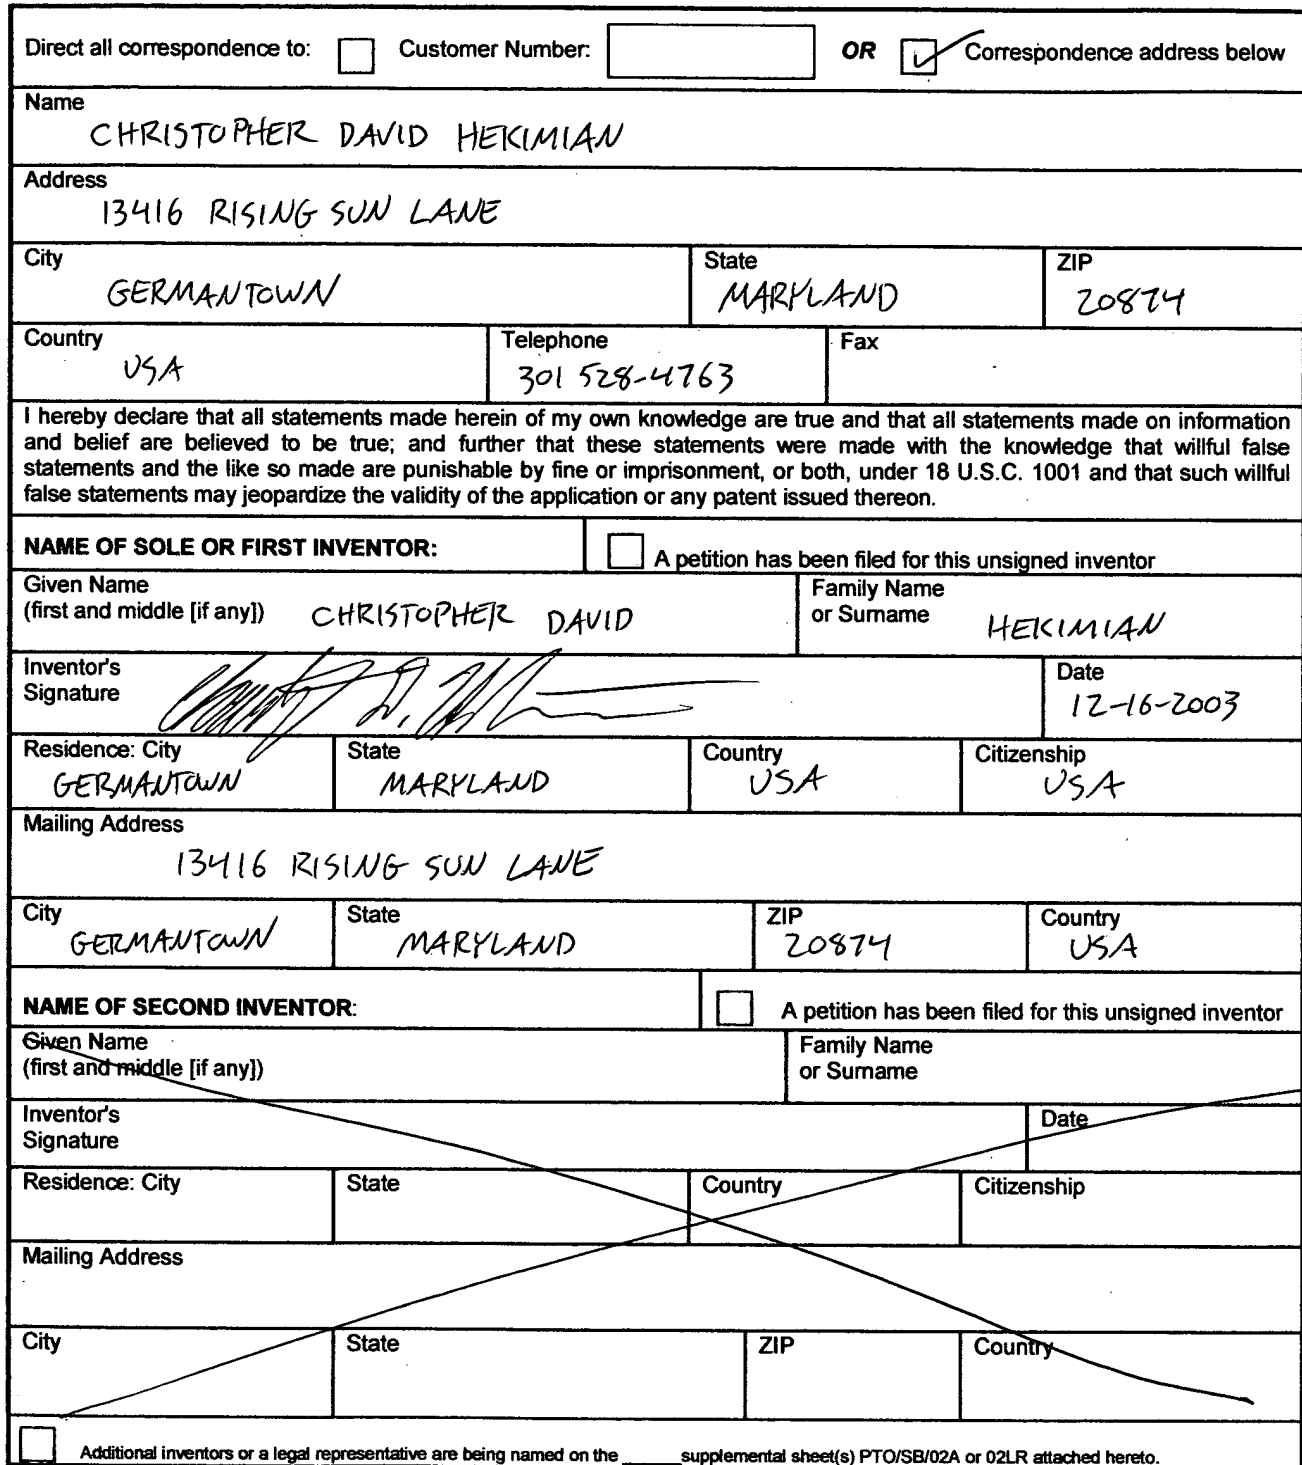 Direct all correspondence to: Customer Number: OR Correspondence address below
Name
CHRISTOPHER DAVID HEKIMIAN
Address
13416 RISING SUN LANE
City State ZIP
GERMANTOWN MARYLAND 20874
Country Telephone Fax
USA 301 528-4763
I hereby declare that all statements made herein of my own knowledge are true and that all statements made on information
and belief are believed to be true; and further that these statements were made with the knowledge that willful false
statements and the like so made are punishable by fine or imprisonment, or both, under 18 U.S.C. 1001 and that such willful
false statements may jeopardize the validity of the application or any patent issued thereon.
NAME OF SOLE OR FIRST INVENTOR: A petition has been filed for this unsigned inventor
Given Name Family Name
(first and middle [if any]) CHRISTOPHER DAVID or Surname HEKIMIAN
Inventor's Date
Signature 12-16-2003
Residence: City State Country Citizenship
GERMANTOWN MARYLAND USA USA
Mailing Address
13416 RISING SUN LANE
City State ZIP Country
GERMANTOWN MARYLAND 20874 USA
NAME OF SECOND INVENTOR: A petition has been filed for this unsigned inventor
Given Name Family Name
(first and middle [if any]) or Surname
Inventor's Date
Signature
Residence: City State Country Citizenship
Mailing Address
City State ZIP Country
Additional inventors or a legal representative are being named on the _____ supplemental sheet(s) PTO/SB/02A or 02LR attached hereto.